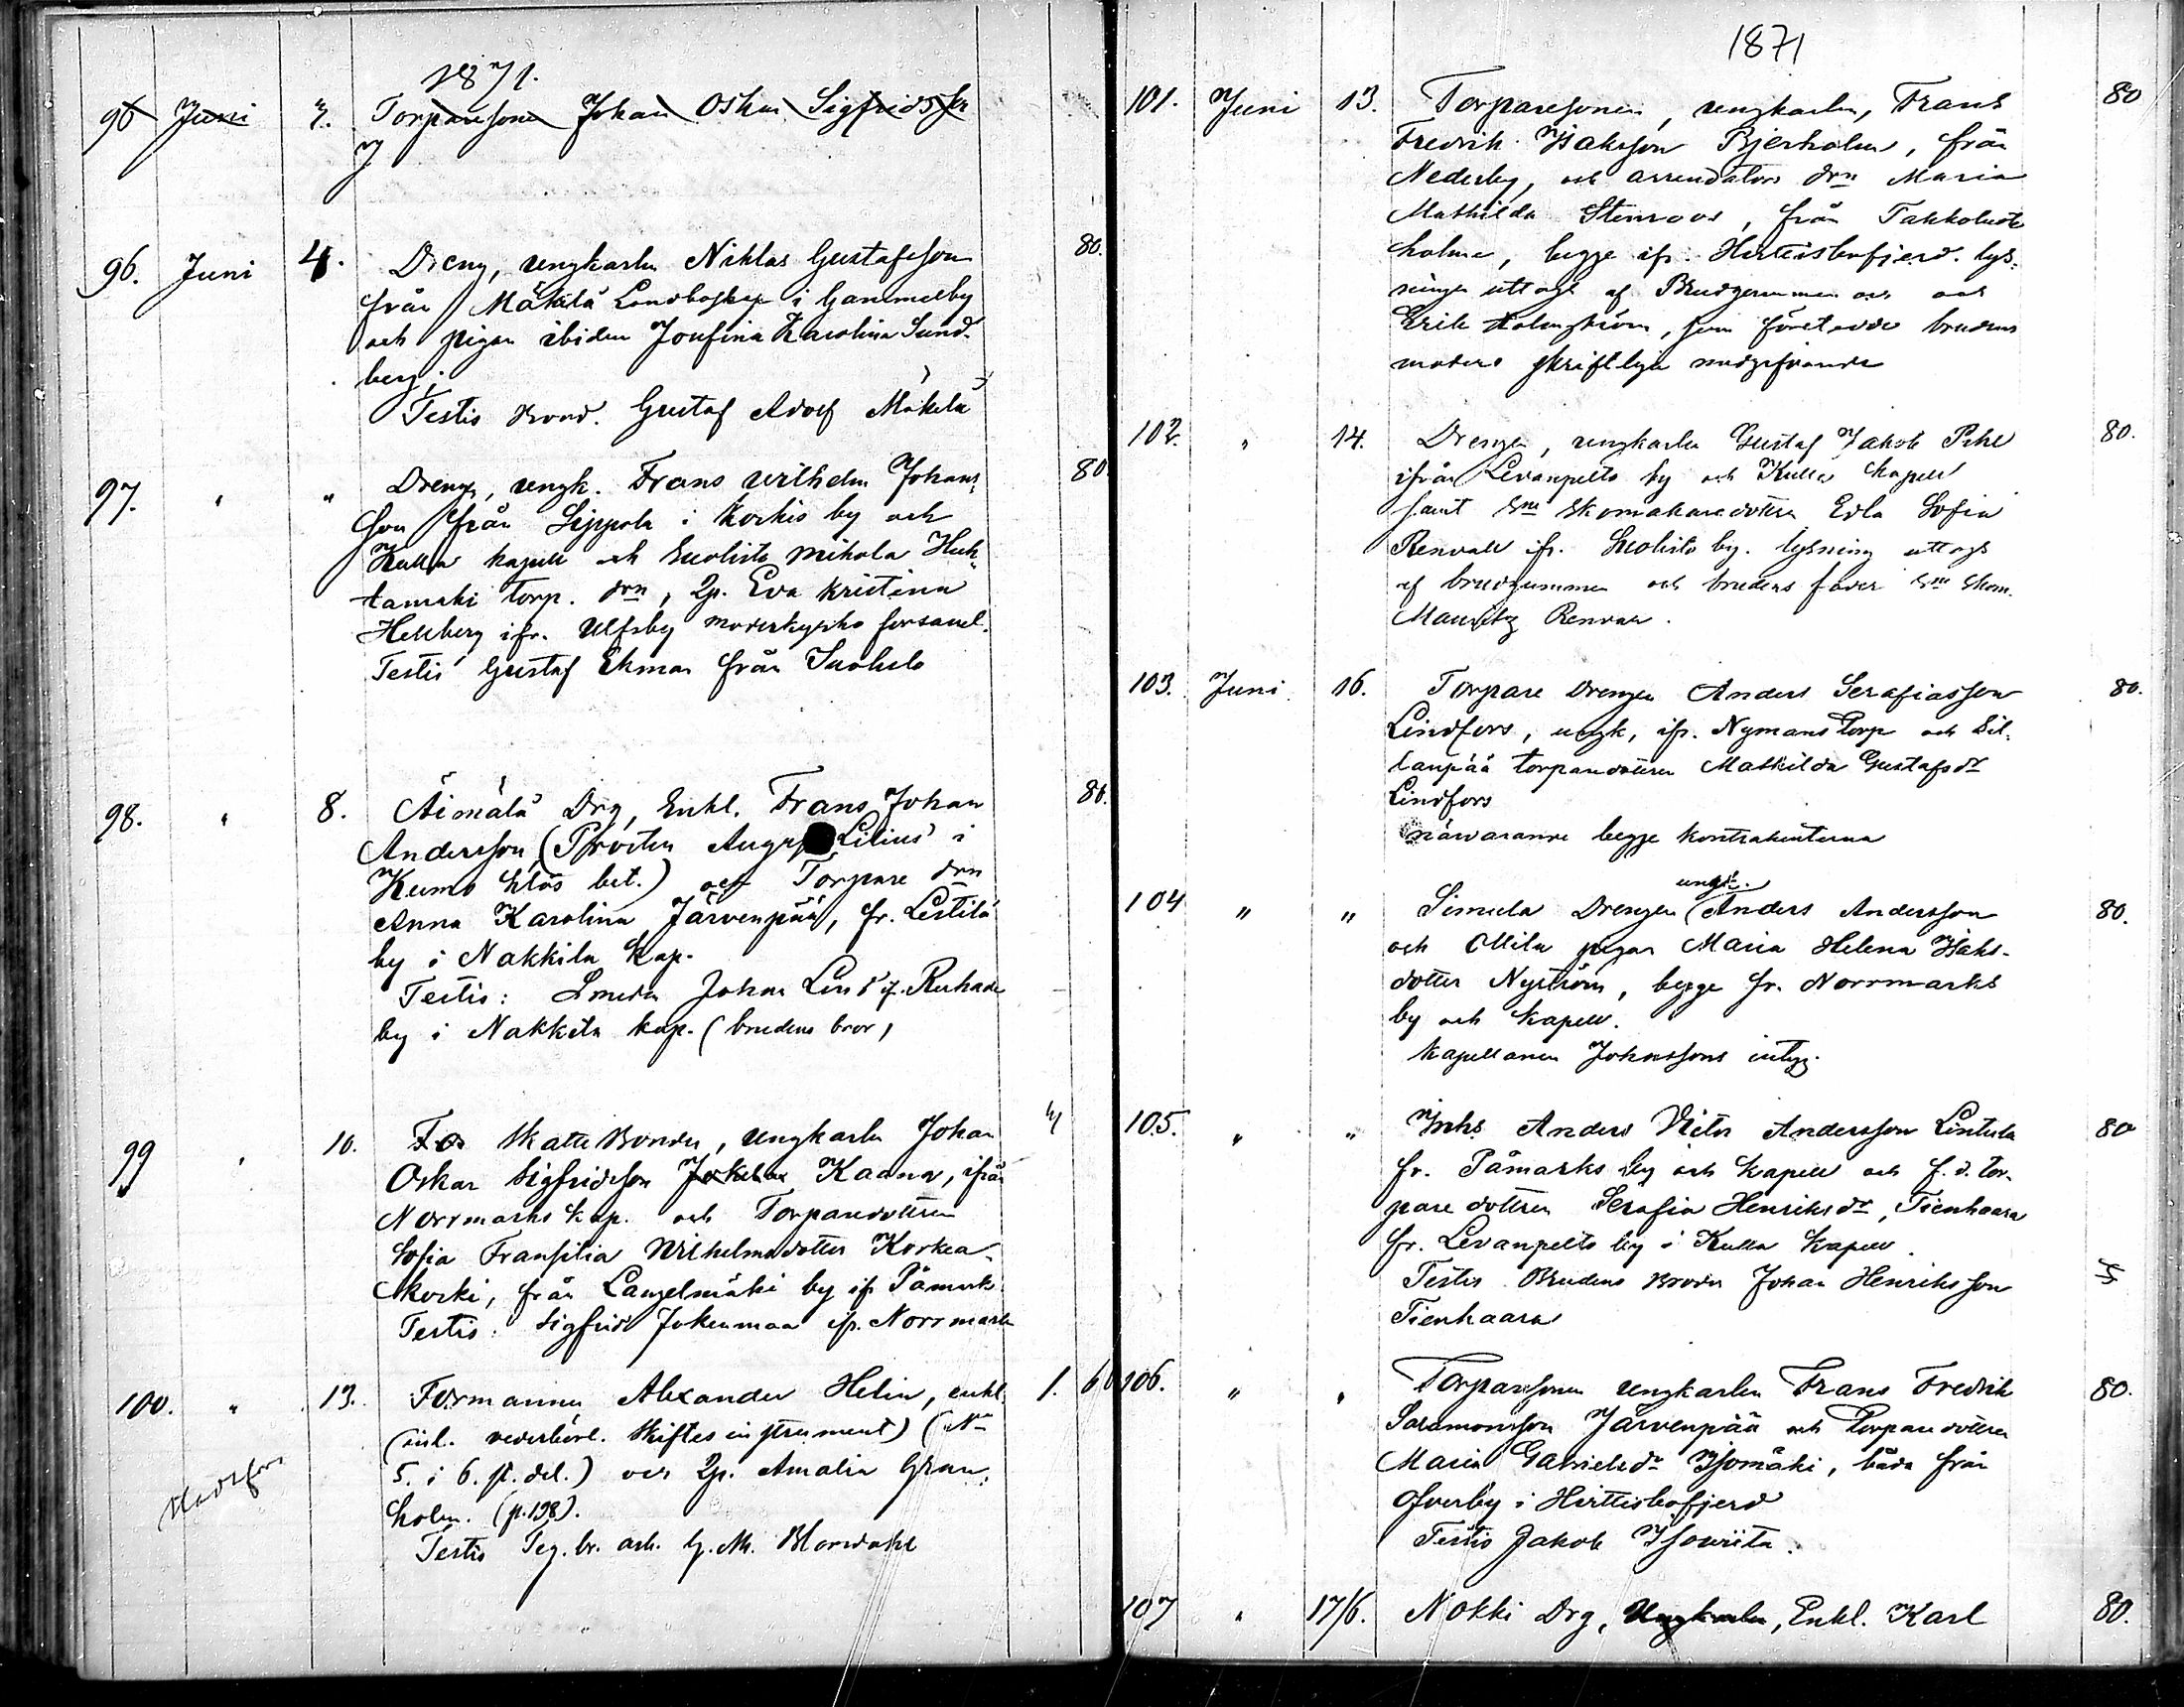 1871.
96 Juni 3. Torparesonen Johan Oskar Sigfridsson
J
96. Juni 4. Dreng, ungkarlen Niklas Gustafsson 80.
från Mäkilä Landboskap i Gammelby
och pigan ibidem Josefina Karolina Sund-
berg;
Testis Bond. Gustaf Adolf Mäkelä
97. " " Drengen, ungk. Frans Wilhelm Johans- 80
son från Sippola i Korkis by och
Kulla kapell och Suolisto Mikola Huh-
tamäki torp. drn, Qp. Eva Kristina
Hellberg ifr. Ulfsby moderkyrko församl.
Testis Gustaf Ekman från
98. " 8. Äimälä Drg, Enkl. Frans Johan 80.
Andersson (Prosten August Lilius i
Kumo bet.) och Torpare drn
Anna Karolina Järvenpää, fr. Leistilä
by i Nakkila kap.
Testis: Smeden Johan Lind if. Ruhade
by i Nakkila kap. (brudens bror)
99 " 10. Skatte Bonden, ungkarlen Johan
Oskar Sigfridsson Kaanaa, ifrån
Norrmarks kap. och Torparedottren
Sofia Fransilia Wilhelmsdotter Korkea-
koski, från Langelmäki by if. Påmark
Testis: Sigfrid Jokenmaa ifr. Norrmark
100. " 13. Formannen Alexander Helin, enkl. 1. 60
(inl. vederbörl. Skiftes instrument) (N:o
5. i 6. st. del.) och Qp. Amalia Gran-
holm. (p. 198).
Testis
1871
101. Juni 13. Torparesonen, ungkarlen, Frans 80
Fredrik Isaksson Bjerholm, från
Nederby, och arrendators drn Maria
Mathilda Stenroos, från
holme, begge ifr. Hvittisbofjerd. lys-
ningen uttogs af Brudgummen och
Erik Holmström, som företedde brudens
moders skriftliga medgifvande
102. " 14. Drengen, ungkarlen Gustaf Jakob Pihl 80.
ifrån Levanpelto by och Kulla kapell
samt Skomakaredottren Edla Sofia
Renvall ifr. Suolisto by. lysning uttogs
af brudgummen och brudens fader Skom.
Mauritz Renvall.
103. Juni 16. Torpare Drengen Anders Serafiasson 80.
Lindfors, ungk, ifr. Nymans Torp och Sil-
lanpää torparedottren Mathilda Gustafsdr
Lindfors
närvarande begge kontrahenterna
ungk.
104 " " Simula Drengen Anders Andersson 80.
och Ollila pigan Maria Helena Isaks-
dotter Nyström, begge fr. Norrmarks
by och kapell.
Kapellanen Johanssons intyg.
105. " " Inhs Anders Victor Andersson Lintula 80
fr. Påmarks by och kapell och f.d. tor-
pare dottren Serafia Henriksdr, Tienhaara
fr. Levanpelto by i Kulla kapell.
Testis Brudens Broder Johan Henriksson
Tienhaara
106. " " Torparesonen ungkarlen Frans Fredrik 80.
Salomonsson Järvenpää och Torparedottren
Maria Gabrielsdr Isomäki, båda från
Öfverby i Hvittisbofjerd
Testis Jakob Isowiita.
107 " 17/6. Nokki Drg, Ungkarlen, Enkl. Karl 80.